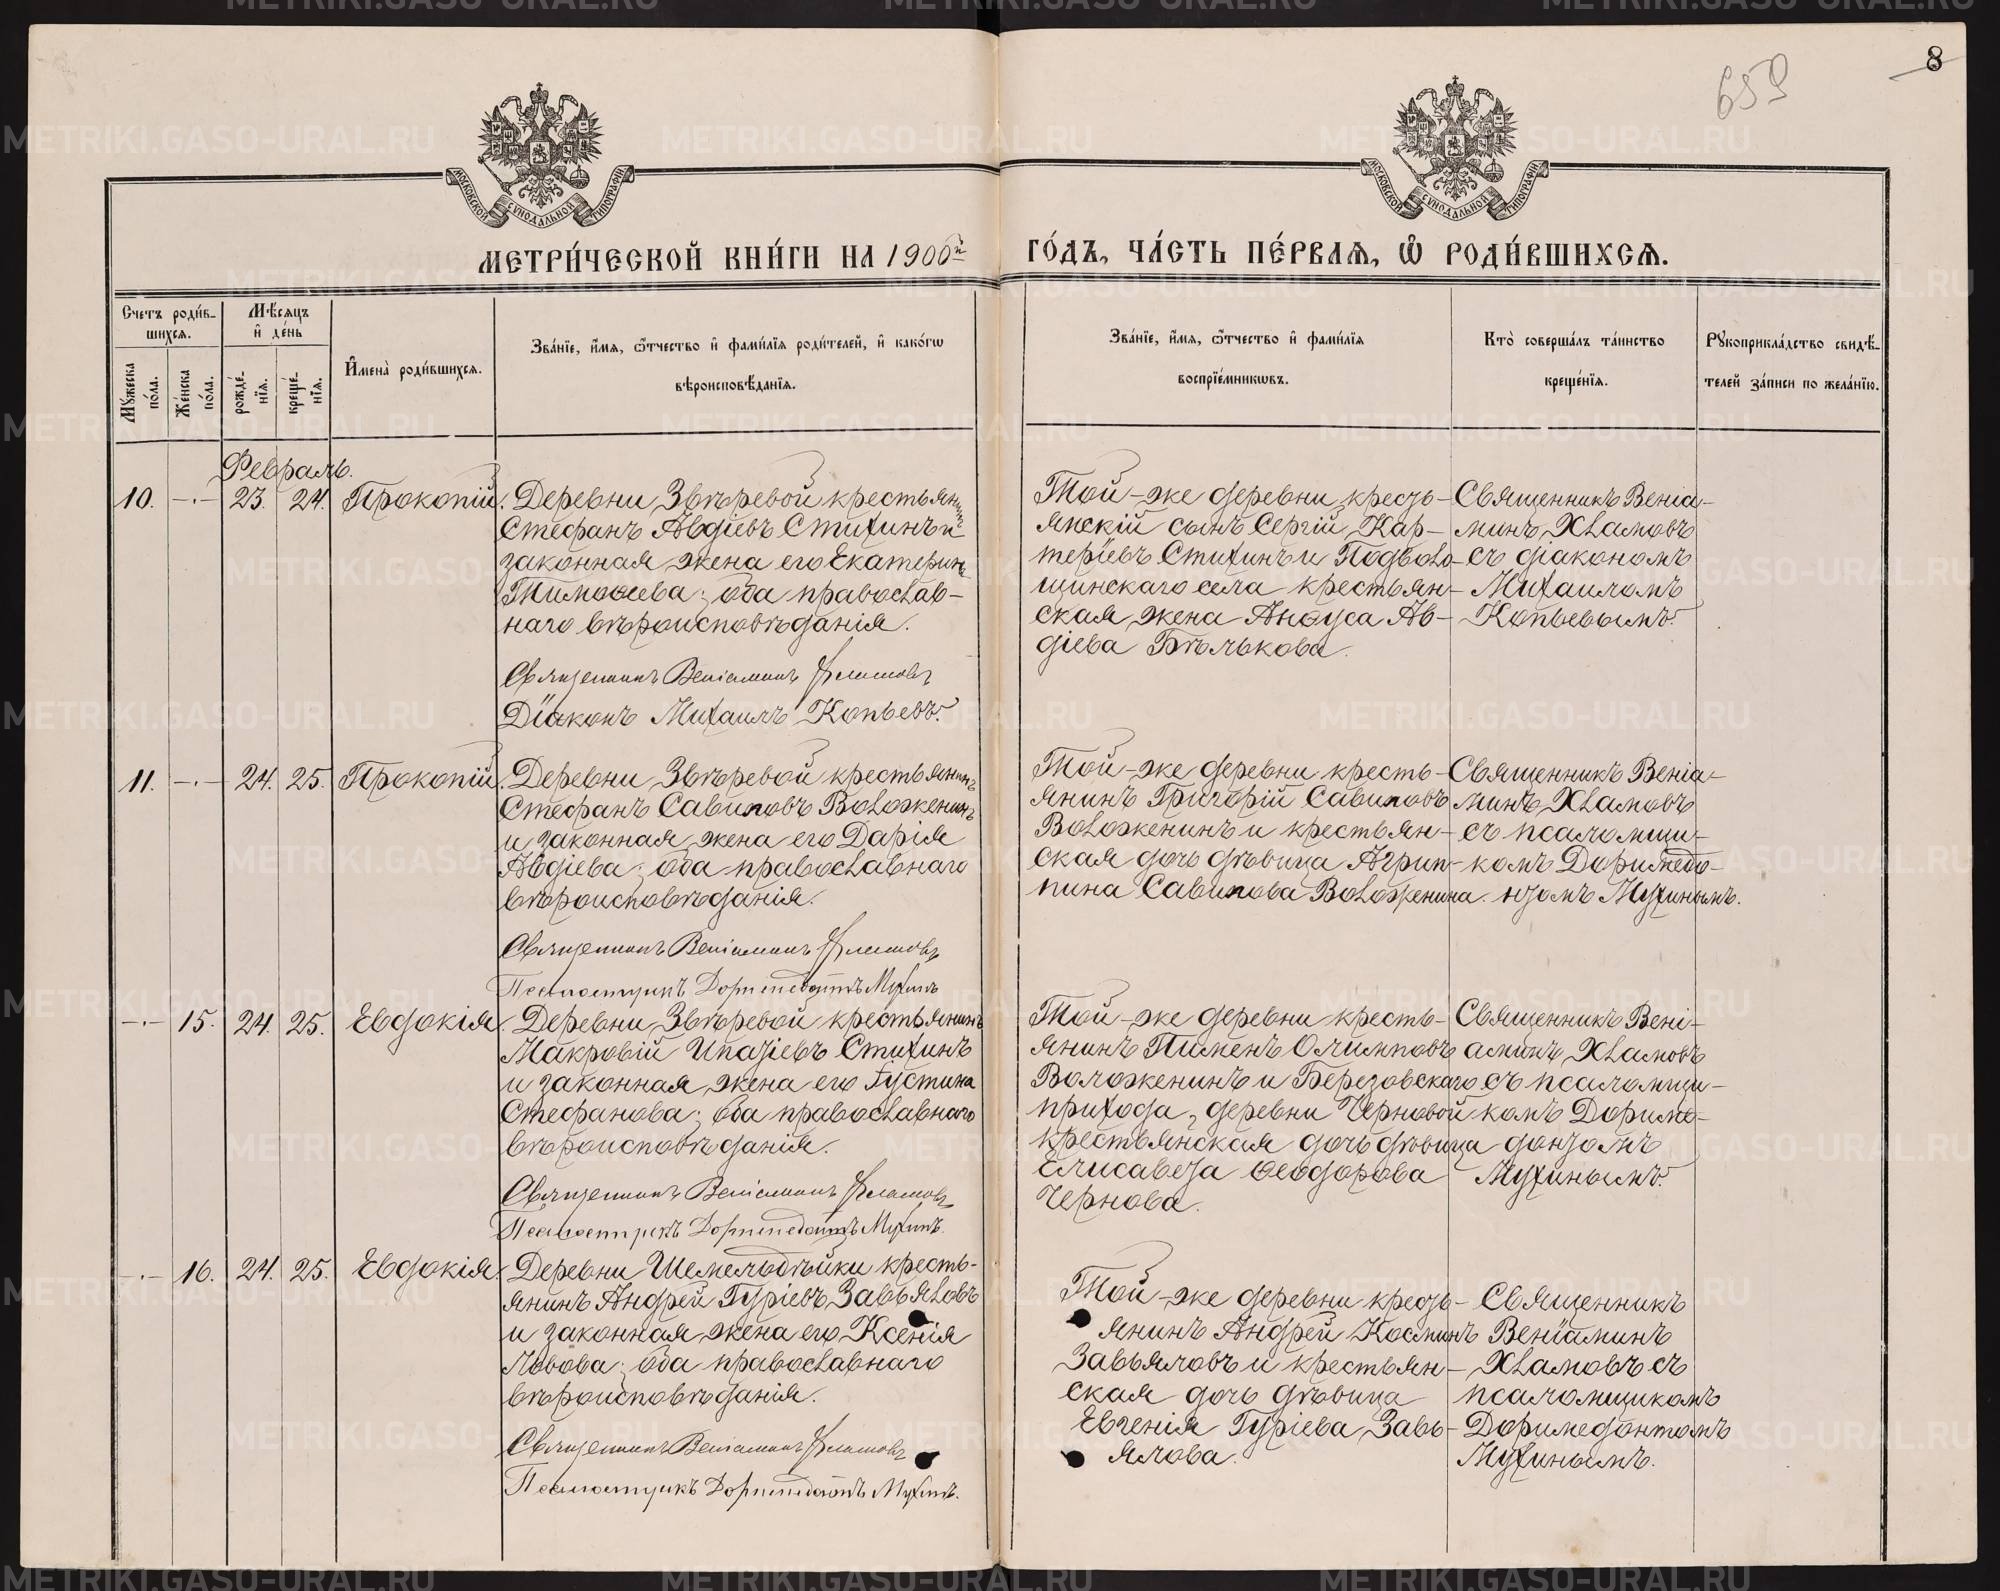 8
659
МОСКОВСКОЙ СѴНОДАЛЬНОЙ ТИПОГРАФІИ
МОСКОВСКОЙ СѴНОДАЛЬНОЙ ТИПОГРАФІИ
МЕТРИ́ЧЕСКОЙ КНИ́ГИ НА 1900й
ГО́ДЪ, ЧА́СТЬ ПЕ́РВАѦ, Ѽ РОДИ́ВШИХСѦ.
Счетъ роди́в-
шихсѧ.
Мѣ́сѧцъ
и҆ де́нь
Мꙋ́жеска
по́ла.
Же́нска
по́ла.
рожде́-
нїѧ.
креще́-
нїѧ.
И҆мена̀ роди́вшихсѧ.
Зва́нїе, и҆́мѧ, ѻ҆́тчество и҆ фами́лїѧ роди́телей, и҆ како́гѡ
вѣроисповѣ́данїѧ.
Зва́нїе, и҆́мѧ, ѻ҆́тчество и҆ фами́лїѧ
воспрїе́мникѡвъ.
Кто̀ соверша́лъ та́инство
креще́нїѧ.
Рꙋкоприкла́дство свидѣ́-
телей за́писи по жела́нїю.
Февраль.
10. -·- 23. 24. Прокопій.
Деревни Звѣревой крестьянинъ
Стефанъ Авдіевъ Стихинъ и
законная жена его Екатерина
Тимоѳеева; оба православ-
наго вѣроисповѣданія.
Священникъ Веніаминъ Хламовъ
Діаконъ Михаилъ Копьевъ.
Той-же деревни кресть-
янскій сынъ Сергій Кар-
теріевъ Стихинъ и Подволо-
щинскаго села крестьян-
ская жена Анѳуса Ав-
діева Бѣлькова.
Священникъ Веніа-
минъ Хламовъ
съ діакономъ
Михаиломъ
Копьевымъ.
11. -·- 24. 25. Прокопій.
Деревни Звѣревой крестьянинъ
Стефанъ Савиновъ Воложенинъ
и законная жена его Дарія
Авдіева; оба православнаго
вѣроисповѣданія.
Священникъ Веніаминъ Хламовъ
Псаломщикъ Доримедонтъ Мухинъ
Той-же деревни кресть-
янинъ Григорій Савиновъ
Воложенинъ и крестьян-
ская дочь дѣвица Агрип-
пина Савинова Воложенина.
Священникъ Веніа-
минъ Хламовъ
съ псаломщи-
комъ Доримедо-
нтомъ Мухинымъ.
-·- 15. 24. 25. Евдокія.
Деревни Звѣревой крестьянинъ
Макровій Ипатіевъ Стихинъ
и законная жена его Іустина
Стефанова; оба православнаго
вѣроисповѣданія.
Священникъ Веніаминъ Хламовъ
Псаломщикъ Доримедонтъ Мухинъ.
Той-же деревни кресть-
янинъ Пименъ Олимповъ
Воложенинъ и Березовскаго
прихода, деревни Черновой
крестьянская дочь дѣвица
Елисавета Ѳеодорова
Чернова.
Священникъ Вені-
аминъ Хламовъ
съ псаломщи-
комъ Дориме-
донтомъ
Мухинымъ.
-·- 16. 24. 25. Евдокія.
Деревни Шемельдѣйки кресть-
янинъ Андрей Гуріевъ Завьяловъ
и законная жена его Ксенія
Львова; оба православнаго
вѣроисповѣданія.
Священникъ Веніаминъ Хламовъ
Псаломщикъ Доримедонтъ Мухинъ.
Той-же деревни кресть-
янинъ Андрей Косминъ
Завьяловъ и крестьян-
ская дочь дѣвица
Евгенія Гуріева Завь-
ялова.
Священникъ
Веніаминъ
Хламовъ съ
псаломщикомъ
Доримедонтомъ
Мухинымъ.
METRIKI.GASO-URAL.RU